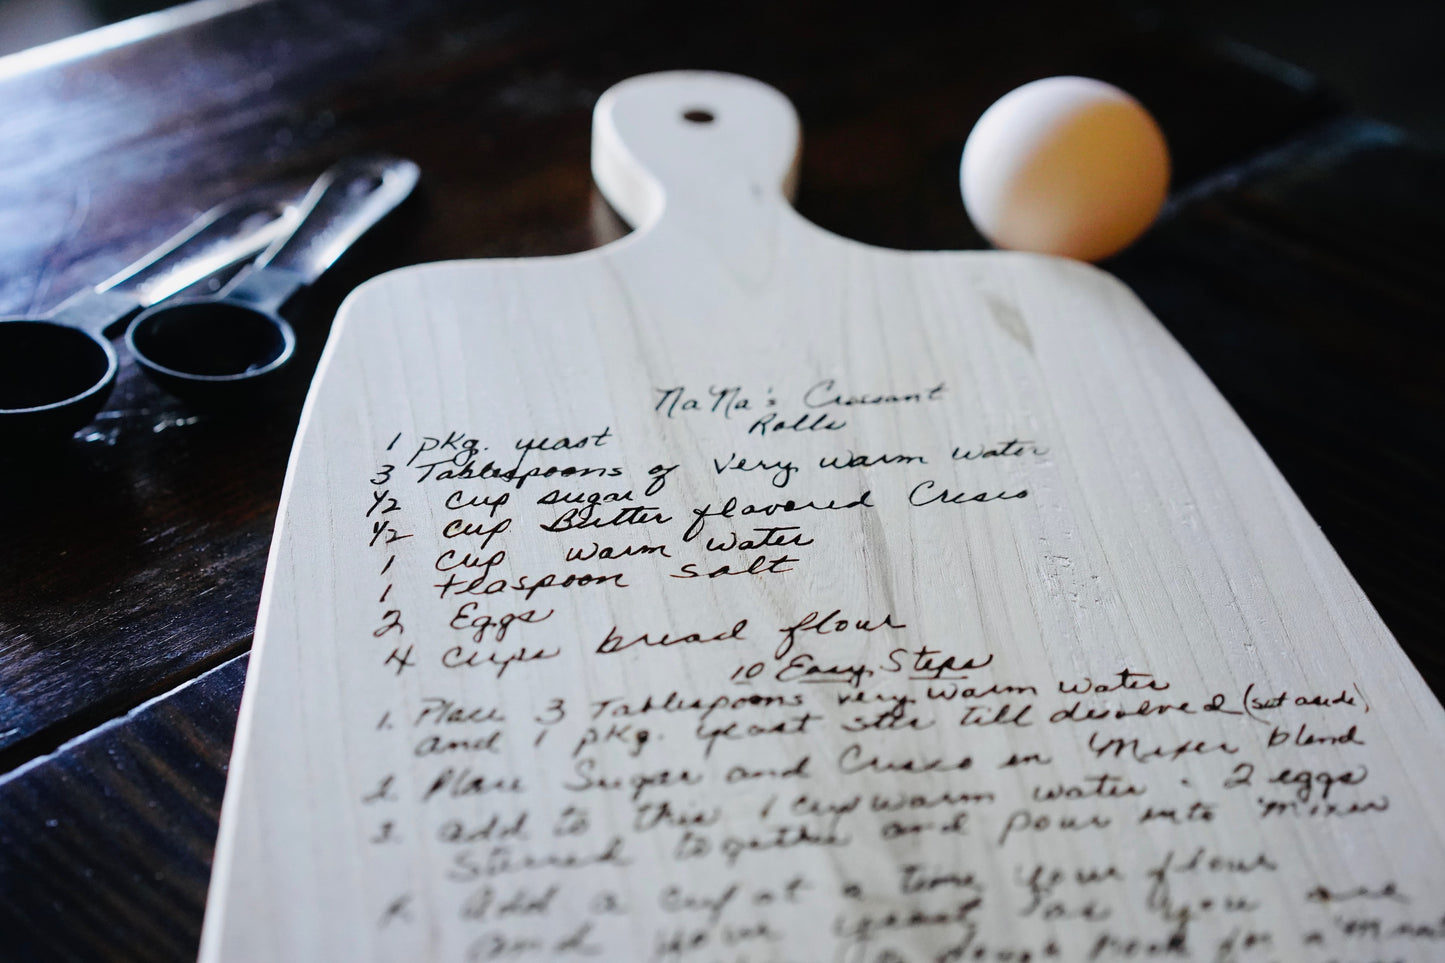 NaNa's Croisant
Rolls
1 pkg. yeast
3 Tablespoons of very warm water
1/2 cup sugar
1/2 cup Butter flavored Crisco
1 cup warm water
1 teaspoon salt
2 Eggs
4 cups bread flour
10 Easy Steps
1. Place 3 Tablespoons very warm water
and 1 pkg. yeast stir till disolved (set aside)
2. Place Sugar and Crisco in Mixer blend
3. add to this 1 cup warm water - 2 eggs
Stirred together and pour into mixer
4. Add a cup at a time your flour
and your yeast as you are
dough hook for a